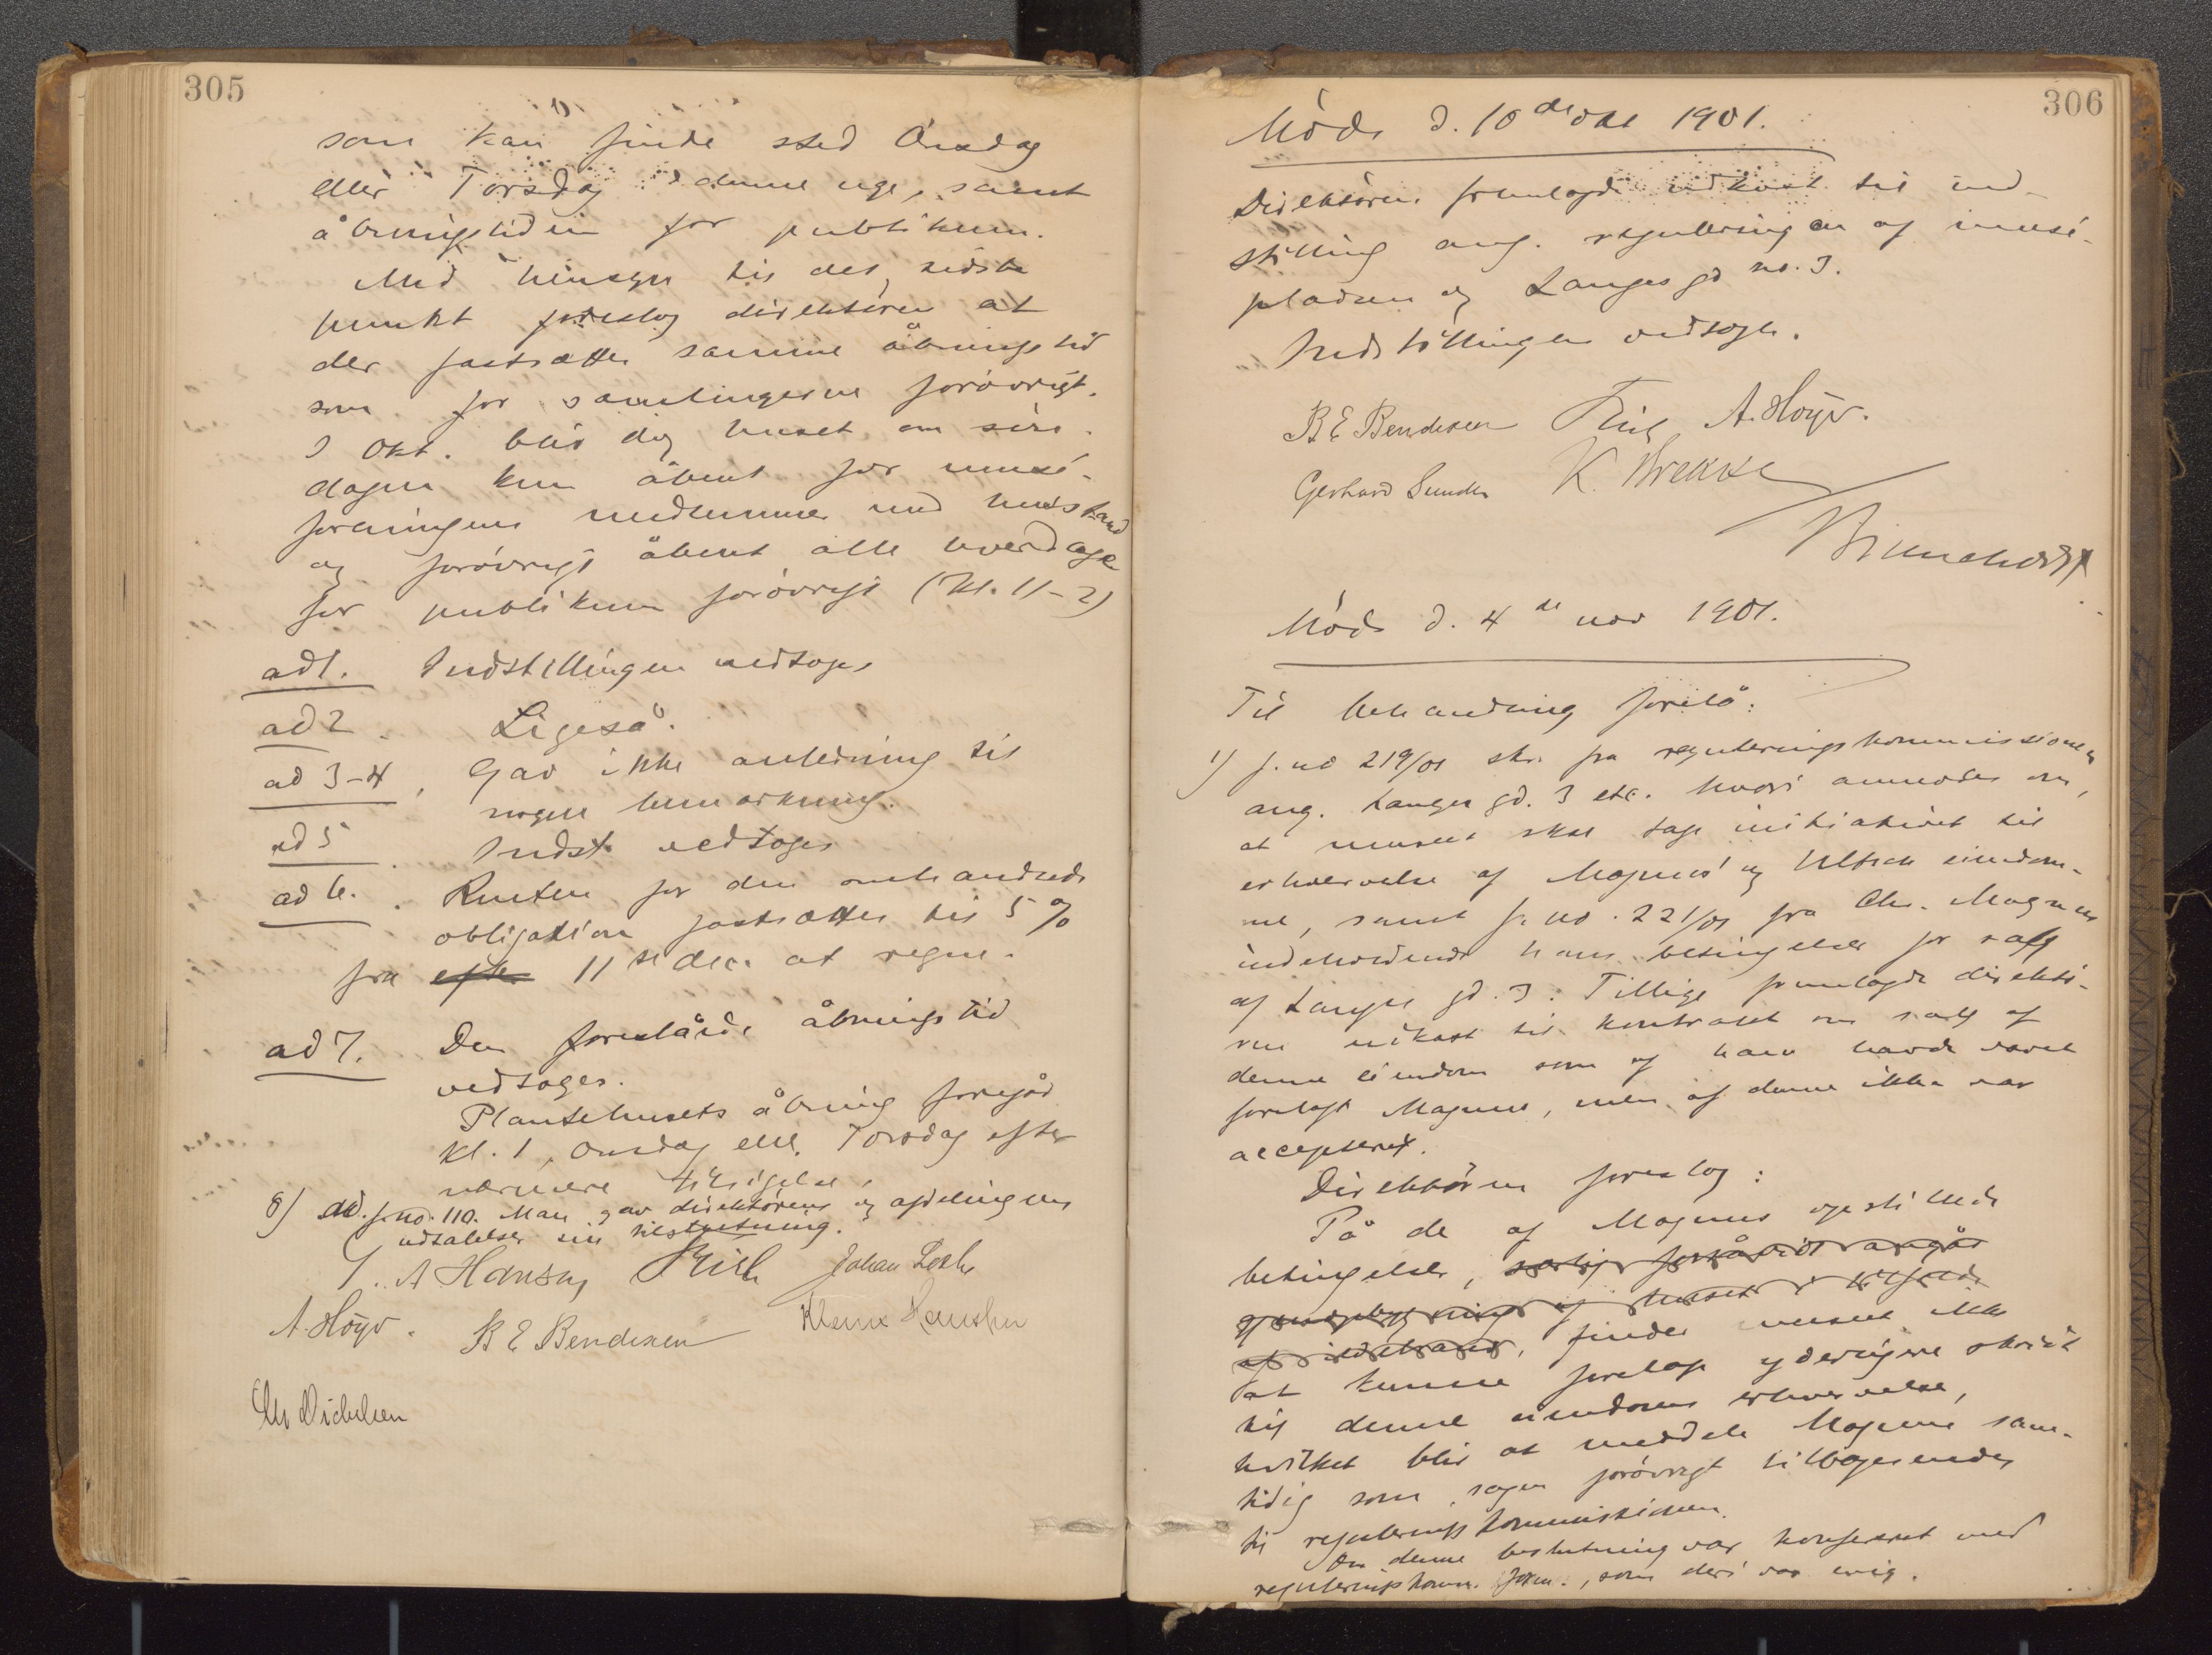 305
som kan finde sted Onsdag
eller Torsdag i denne uge, samt
åbningstiden for publikum.
Med hensyn til det sidste
punkt foreslog direktören at
der fastsættes samme åbningstid
som for samlingerne forövrigt.
I Okt. blir dog huset om sön-
dagen kun åbent for musé-
foreningens medlemmer med husstand
og forövrigt åbent alle hverdage
for publikum forövrigt (kl. 11-2)
ad 1. Indstillingen vedtoges
ad 2. Ligeså.
ad 3-4, Gav ikke anledning til
nogen bemærkning.
ad 5. Indst. vedtoges
ad 6. Renten for den omhandlede
obligation fastsættes til 5 %
fra efter 11te dec. at regne.
ad 7. Den foreslåede åbningstid
vedtoges.
Plantehusets åbning foregår
kl. 1, Onsdag ell. Torsdag efter
nærmere tilsigelse.
8) Ad. j. no. 110. Man gav direktörens og afdelingens
udtalelser sin tilslutning.
G. A Hansen Friele Johan Lothe
A. Höyer. B E Bendixen Klaus Hanssen
Chr Michelsen
306
Möde d. 10de okt 1901.
Direktören fremlagde udkast til ind-
stilling ang. reguleringen af musé-
pladsen og Langes gd no. 3.
Indstillingen vedtoges.
B E Bendixen Friele A. Höyer.
Gerhard Sundt K. Brekke
Brunchorst
Möde d. 4de nov 1901.
Til behandling forelå:
1) j. no 219/01 skr. fra reguleringskommissionen
ang. Langes gd. 3 etc. hvori anmodes om,
at museet skal tage initiativet til
erhvervelse af Magnus' og eiendom-
me, samt j. no. 221/01 fra Chr. Magnus
indeholdende hans betingelser for salg
af Langes gd. 3. Tillige fremlagde direktö-
ren udkast til kontrakt om salg af
denne eiendom som af ham havde været
forelagt Magnus, men af denne ikke var
accepteret.
Direktören foreslog:
På de af Magnus opstillede
betingelser, særlig forsåvidt angår
af huset i tilfælde
af ildebrand, finder museet ikke
at kunne foretage yderligere skridt
til denne eiendoms erhvervelse,
hvilket blir at meddele Magnus sam-
tidig som sagen forövrigt tilbagesendes
til reguleringskommissionen.
Om denne beslutning var konfereret med
reguleringskomm. form., som deri var enig.